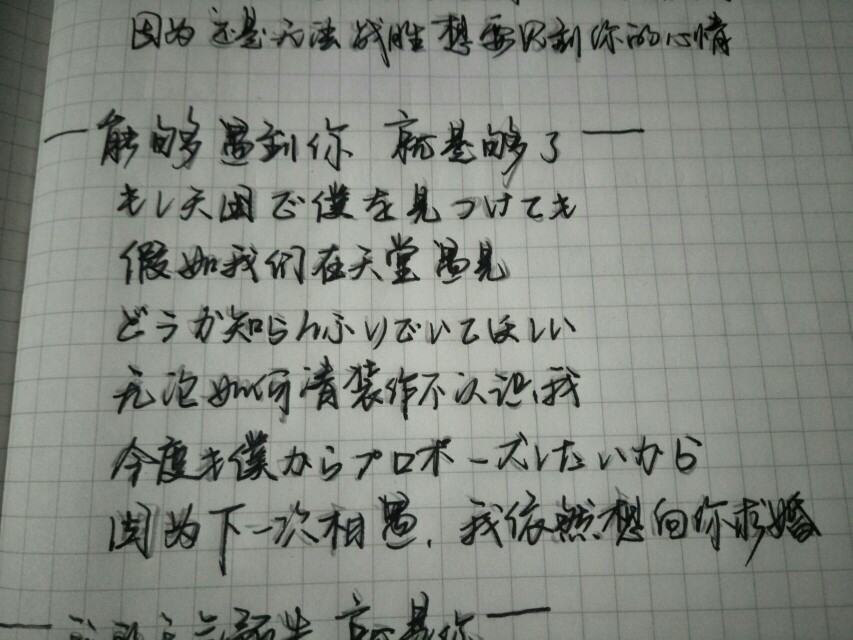 因为还是无法战胜想要见到你的心情
一能够遇到你 就是够了一
もし天国で僕を見つけても
假如我们在天堂遇见
どうか知らんふりでいてほしい
无论如何请装作不认识我
今度も僕からプロポーズしたいから
因为下一次相遇,我依然想向你求婚
就是你一